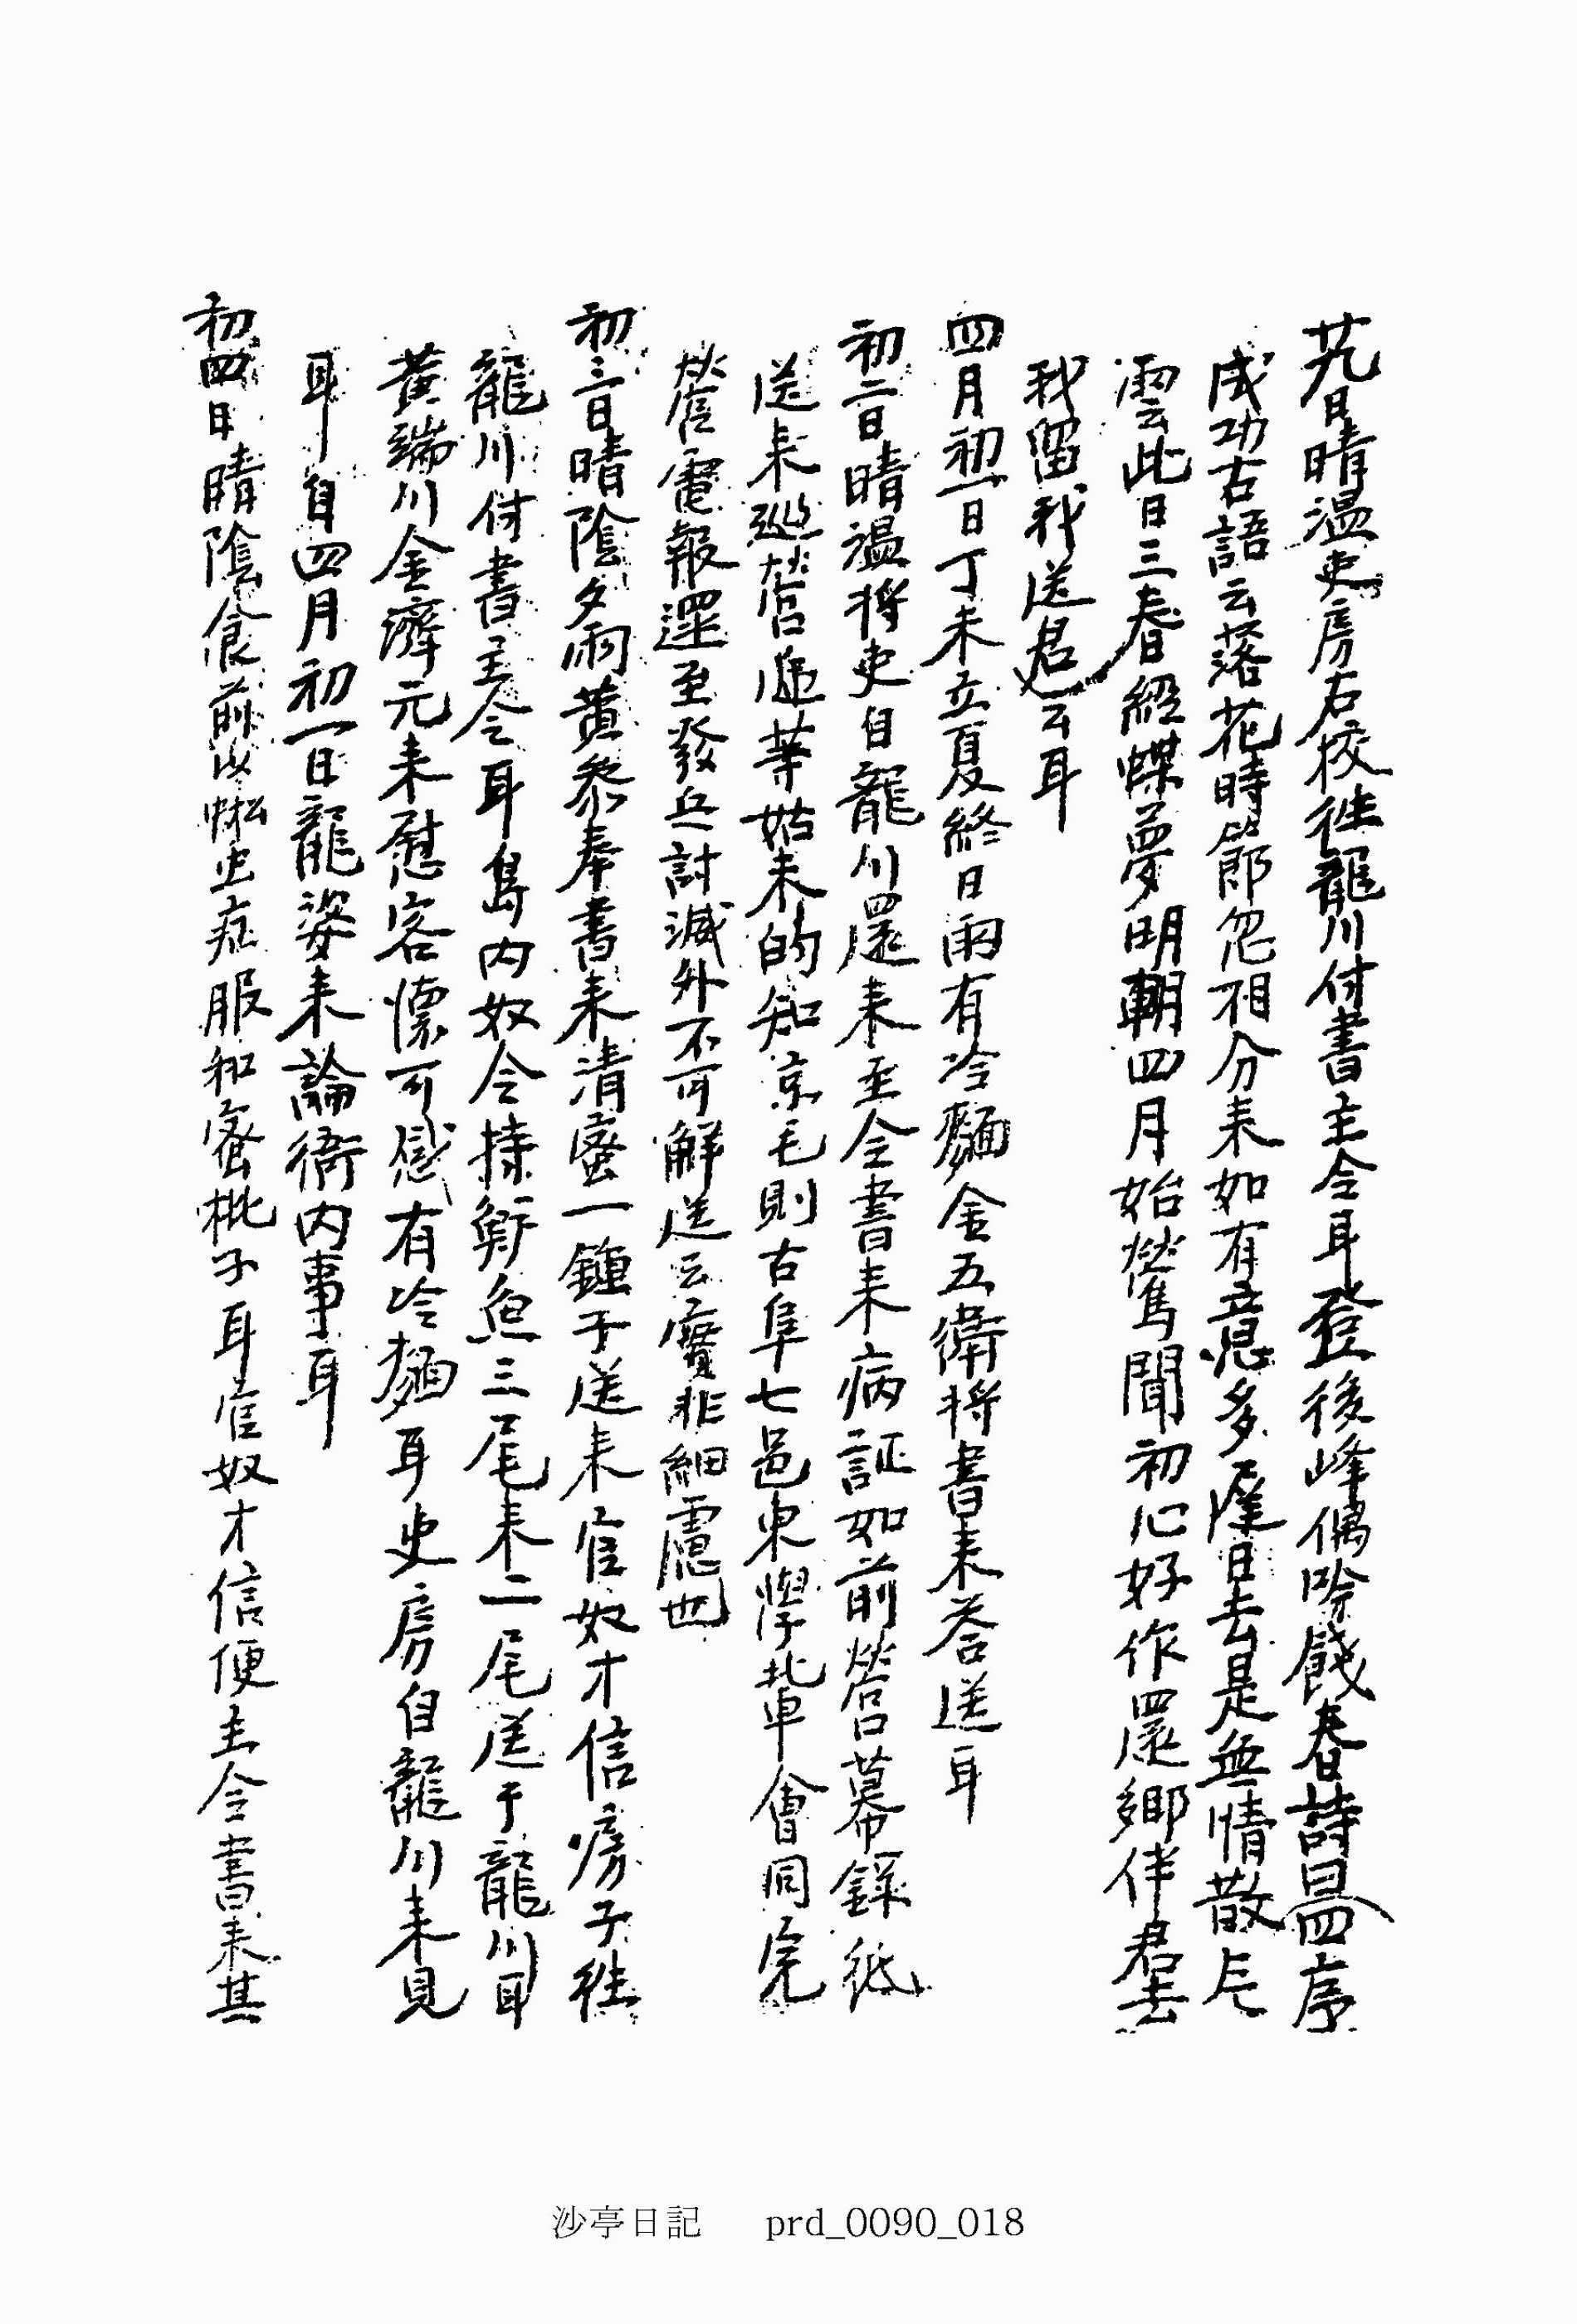 卄九日晴溫吏房右校往龍川付書主令耳登後峰偶吟餞春詩曰四序
成功古語云落花時節忽相分來如有意多遲日去是無情散片
雲此日三春經蝶夢明朝四月始鶯聞初心好作還鄕伴君去
我留我送君云耳
四月初一日丁未立夏終日雨有冷麵金五衛將書來答送耳
初二日晴溫將吏自龍川還來至令書來病証如前營幕錄紙
送來巡營  華姑未的知京毛則古阜七邑東學輩會同完
營電報還至發兵討滅外不可解送云實非細慮也
初三日晴陰夕雨黃參奉書來淸蜜一鍾子送來官奴才信房子往
龍川付書主令耳島內奴令持 魚三尾來二尾送于龍川耳
黃端川金濟元來慰客懷可感有冷麵耳吏房自龍川來見
耳自四月初一日龍姿來論衙內事耳
初四日晴陰食前以 虫症服和蜜 子耳官奴才信便主令書來其